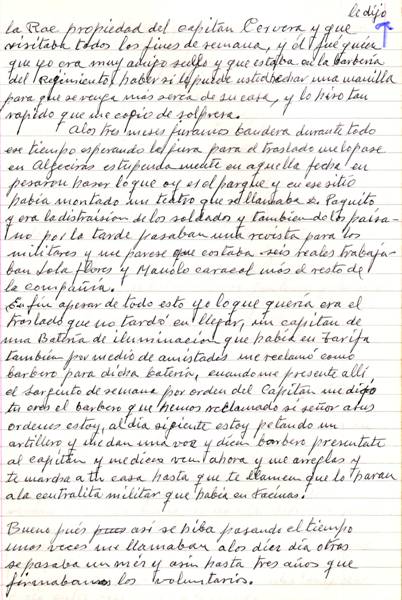 le dijo
la Rae propiedad del capitan Cervera y que
visitaba todos los fines de semana, y él fue quien
que yo era muy amigo sullo y que estaba en la barberia
del Regimiento, haber si le puede usted echar una manilla
para que se venga más serca de su casa, y lo hiso tan
rapido que me copio de solpresa.
Alos tres meses juramos bandera durante todo
ese tiempo esperando la jura para el traslado me lo pase
en Algeciras estupenda mente en aquella fecha en
pesaron haser lo que oy es el parque y en ese sitio
había montado un teatro que se llamaba Paquito
y era la distraision de los soldados y tambien de los paisa-
no por la tarde pasaban una revista para los
militares y me parese que costaba seis reales trabaja-
ban Lola flores y Manolo caracol más el resto de
la compañía.
En fin apesar de todo esto yo lo que quería era el
traslado que no tardó en llegar, un capitan de
una Batería de iluminacion que había en Tarifa
tambien por medio de amistades me reclamó como
barbero para dicha batería, cuando me presente allí
el sargento de semana por orden del Capitan me dijo
tu eres el barbero que hemos reclamado si señor a sus
ordenes estoy, al día sigiente estoy pelando un
artillero y me dan una voz y dicen barbero presentate
al capitan y me dice ven ahora y me arreglas y
te marcha a tu casa hasta que te llamen que lo haran
a la centralita militar que había en Facinas.
Bueno pués así se hiba pasando el tiempo
unos veces me llamaban a los diez día otras
se pasaba un més y asin hasta tres años que
firmabamos los voluntarios.